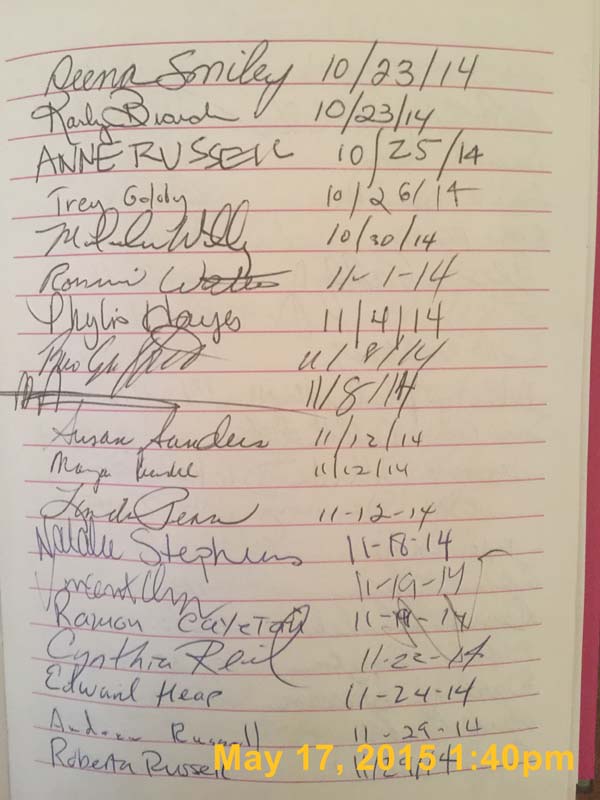 Deena Smiley 10/23/14
Karlyn 10/23/14
ANNE RUSSELL 10/25/14
Trey Goldy 10/26/14
10/30/14
Ronnie Watts 11-1-14
Phylis Hayes 11/4/14
11/8/14
11/8/14
Susan Sanders 11/12/14
11/12/14
Linda Penn 11-12-14
Natalie Stephens 11-18-14
Vincent 11-19-14
Ramon 11-19-14
Cynthia Reil 11-22-14
Edward Heap 11-24-14
Andrew Russell 11-29-14
Roberta Russell 11/29/14
May 17, 2015 1:40pm